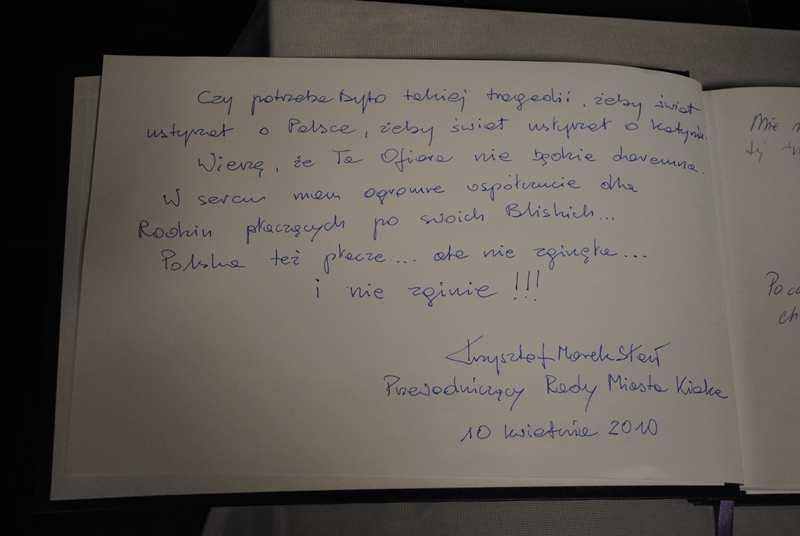 Czy potrzeba było takiej tragedii, żeby świat
usłyszał o Polsce, żeby świat usłyszał o Katyniu.
Wierzę, że Ta Ofiara nie będzie daremna.
W sercu mam ogromne współczucie dla
Rodzin płaczących po swoich Bliskich...
Polska też płacze... ale nie zginęła...
i nie zginie !!!
Krzysztof Marek Słoń
Przewodniczący Rady Miasta Kielce
10 kwietnia 2010
Nie
Po
ch